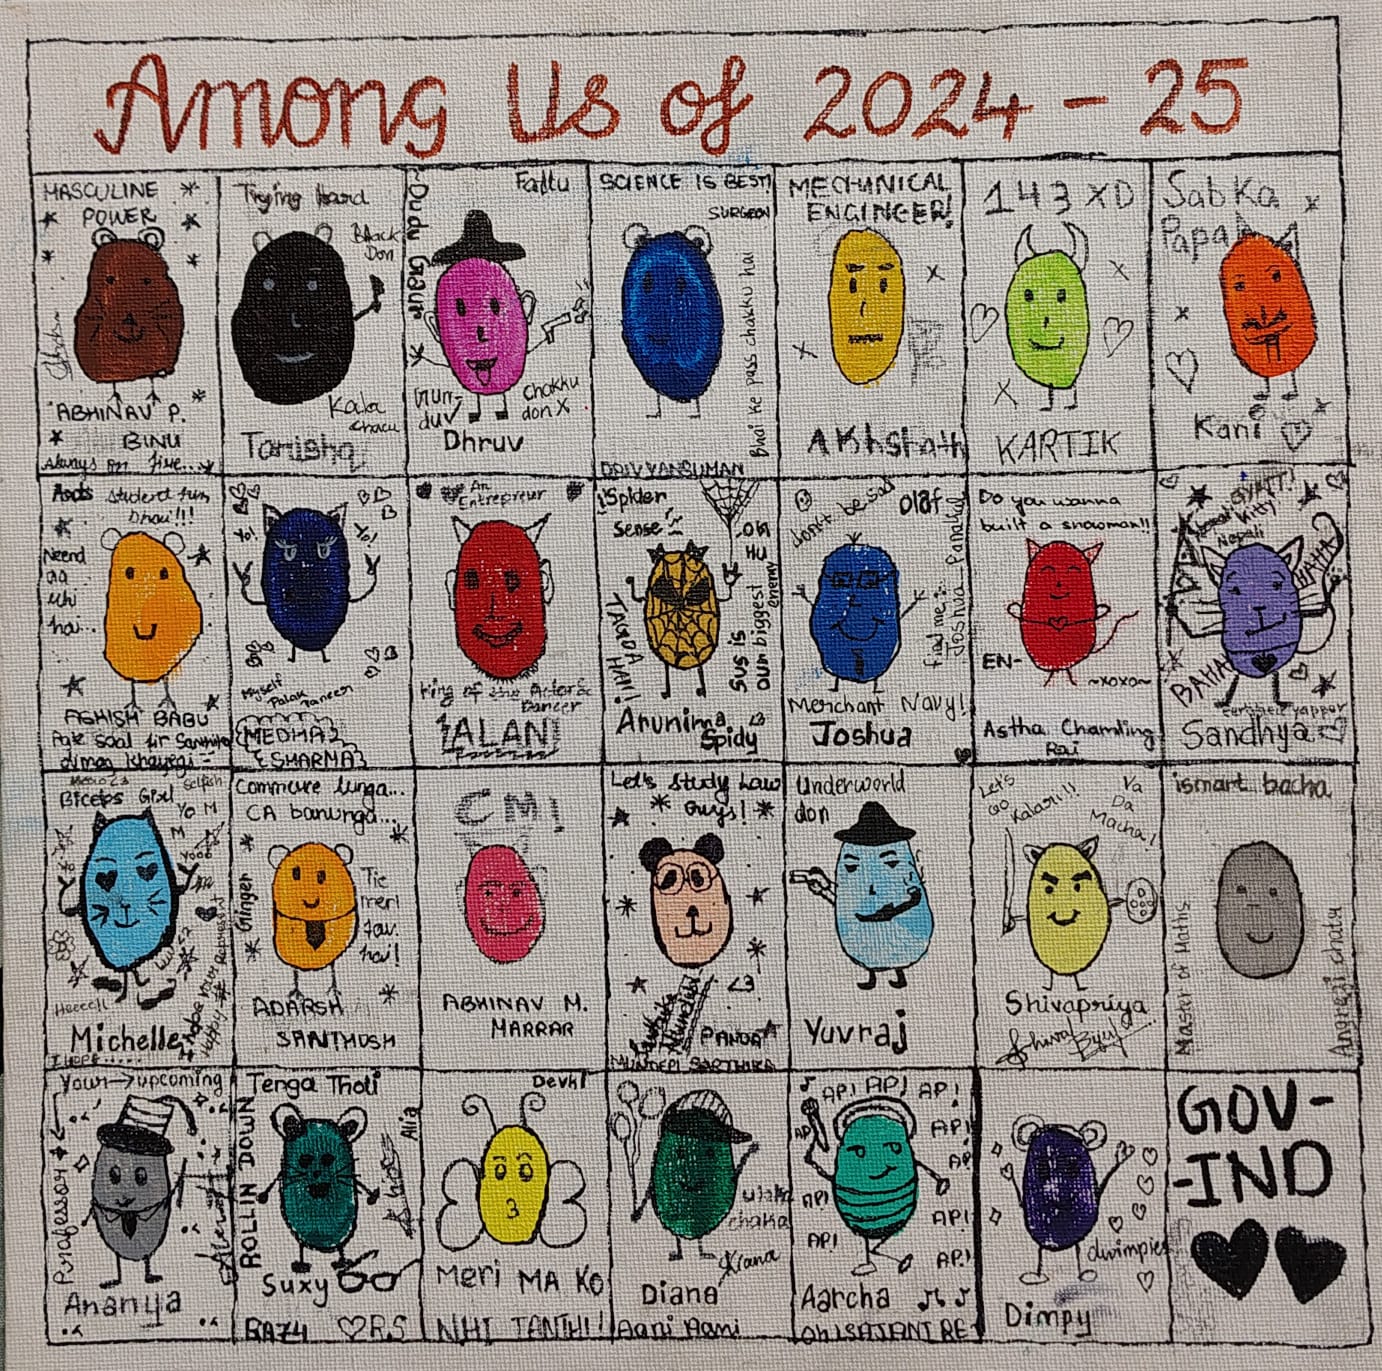 Among Us of 2024 - 25
MASCULINE
POWER
ABHINAV P.
BINU
Always on fire...
Trying hard
Black
Don
Kala
chacu
Tanisha
Dudu Gaur
Fattu
Gun-
duv
Chakku
don X
Dhruv
SCIENCE IS BEST!
SURGEON
Bhai ke pass chakku hai
DRIVYANSUMAN
MECHANICAL
ENGINEER!
Akhshath
143 XD
KARTIK
Sabka
Papa
Kani
student fun
bhai!!!
Neend
aa
uhi
hai...
ASHISH BABU
Yo!
Yo!
Myself
Palak
MEDHA
SHARMA
An
Entrepreur
King of the Actor &
Dancer
ALAN
!Spider
Sense!
OH
HU
TAGDA HAI!
SUS IS
OUR biggest
enemy
Arunima
Spidy
don't be sad
Olaf
find me :- Joshua Panally
Merchant Navy!
Joshua
Do you wanna
built a snowman!!
EN-
~xoxo~
Astha Chamling
Rai
GYATT!
Kitty
Nepali
HAHA
BAHA
certified yapper
Sandhya
Biceps Girl
Selfish
Yo M
M
Heeell
Michelle
I HOPE.....
Commure lunga...
CA banunga...
Ginger
Tie
meri
fav.
hai!
ADARSH
SANTHOSH
CM!
ABHINAV M.
MARRAR
Let's Study Law
Guys!
<3
PANDA
MUNDEPI SARTHIKA
Underworld
don
Yuvraj
Let's
Go
Kalari!!
Va
Da
Macha!
Shivapriya
ismart bacha
Master of Maths
Angrezi chatu
Your → upcoming
Professor
Ananya
Tenga Tholi
ROLLIN DOWN
Alia
Suxy
BA74 ♡ R.S
Devki
Meri MA KO
NHI JANTHI!!
chaka
Kiana
Diana
Aani Aani
AP! AP! AP!
AP!
AP!
AP!
AP!
AP!
AP!
AP!
Aarcha
Oh! SAJANI RE
dwimpie
Dimpy
GOV-
-IND